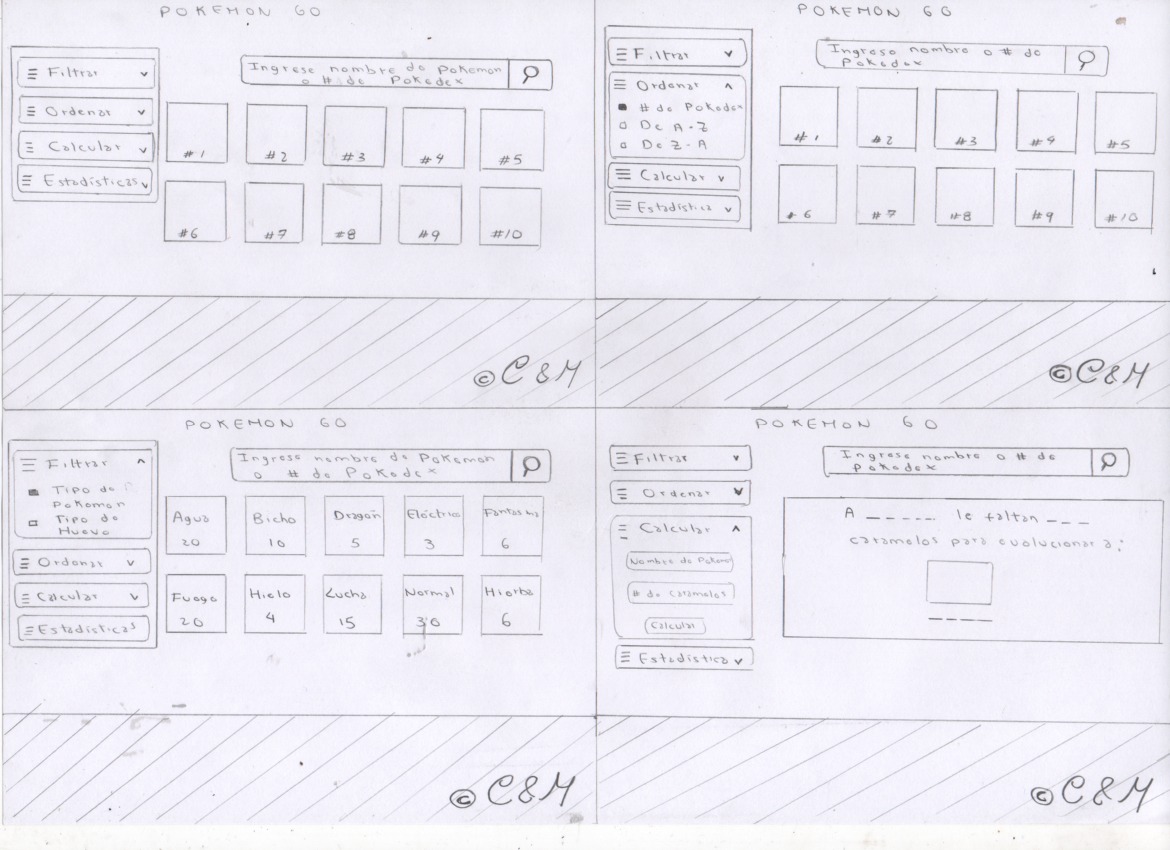 POKEMON GO
≡ Filtrar ∨
≡ Ordenar ∨
≡ Calcular ∨
≡ Estadísticas ∨
Ingrese nombre de Pokemon
o # de Pokedex
#1 #2 #3 #4 #5
#6 #7 #8 #9 #10
© C&M
POKEMON GO
≡ Filtrar ∨
≡ Ordenar ∧
# de Pokedex
De A-Z
De Z-A
≡ Calcular ∨
≡ Estadística ∨
Ingrese nombre o # de
Pokedex
#1 #2 #3 #4 #5
#6 #7 #8 #9 #10
© C&M
POKEMON GO
≡ Filtrar ∧
Tipo de
Pokemon
Tipo de
Huevo
≡ Ordenar ∨
≡ Calcular ∨
≡ Estadísticas
Ingrese nombre de Pokemon
o # de Pokedex
Agua Bicho Dragón Eléctrico Fantasma
20 10 5 3 6
Fuego Hielo Lucha Normal Hierba
20 4 15 30 6
© C&M
POKEMON GO
≡ Filtrar ∨
≡ Ordenar ∨
≡ Calcular ∧
Nombre de Pokemon
# de caramelos
Calcular
≡ Estadística ∨
Ingrese nombre o # de
Pokedex
A _ _ _ _ _ le faltan _ _ _
caramelos para evolucionar a:
_ _ _ _
© C&M